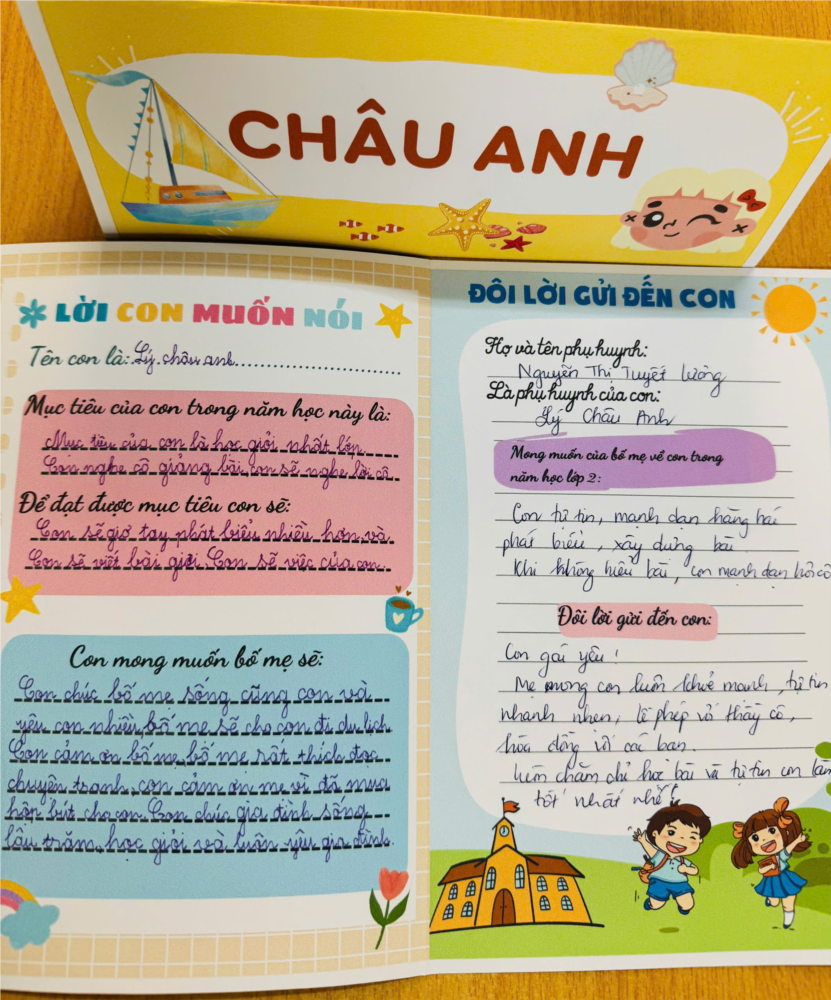 CHÂU ANH
LỜI CON MUỐN NÓI
Tên con là: Lý châu anh
Mục tiêu của con trong năm học này là:
Mục tiêu của con là học giỏi nhất lớp.
Con nghe cô giảng bài, con sẽ nghe lời cô
Để đạt được mục tiêu con sẽ:
Con sẽ giơ tay phát biểu nhiều hơn, và
Con sẽ viết bài giỏi. Con sẽ việc của con.
Con mong muốn bố mẹ sẽ:
Con chúc bố mẹ sống cũng con và
yêu con nhiều, bố mẹ sẽ cho con đi du lịch
Con cảm ơn bố mẹ, bố mẹ rất thích đọc
chuyện tranh, con cảm ơn mẹ vì đã mua
hộp bút cho con. Con chúc gia đình sống
lâu trăm, học giỏi và luôn yêu gia đình.
ĐÔI LỜI GỬI ĐẾN CON
Họ và tên phụ huynh:
Nguyễn Thị Tuyết Lương
Là phụ huynh của con:
Lý Châu Anh
Mong muốn của bố mẹ về con trong
năm học lớp 2:
Con tự tin, mạnh dạn hăng hái
phát biểu, xây dựng bài.
Khi không hiểu bài, con mạnh dạn hỏi cô
Đôi lời gửi đến con:
Con gái yêu!
Mẹ mong con luôn khoẻ mạnh, tự tin
nhanh nhẹn, lễ phép với thầy cô,
hòa đồng với các bạn.
chăm chỉ học bài và tự tin con làm
tốt nhất nhé!